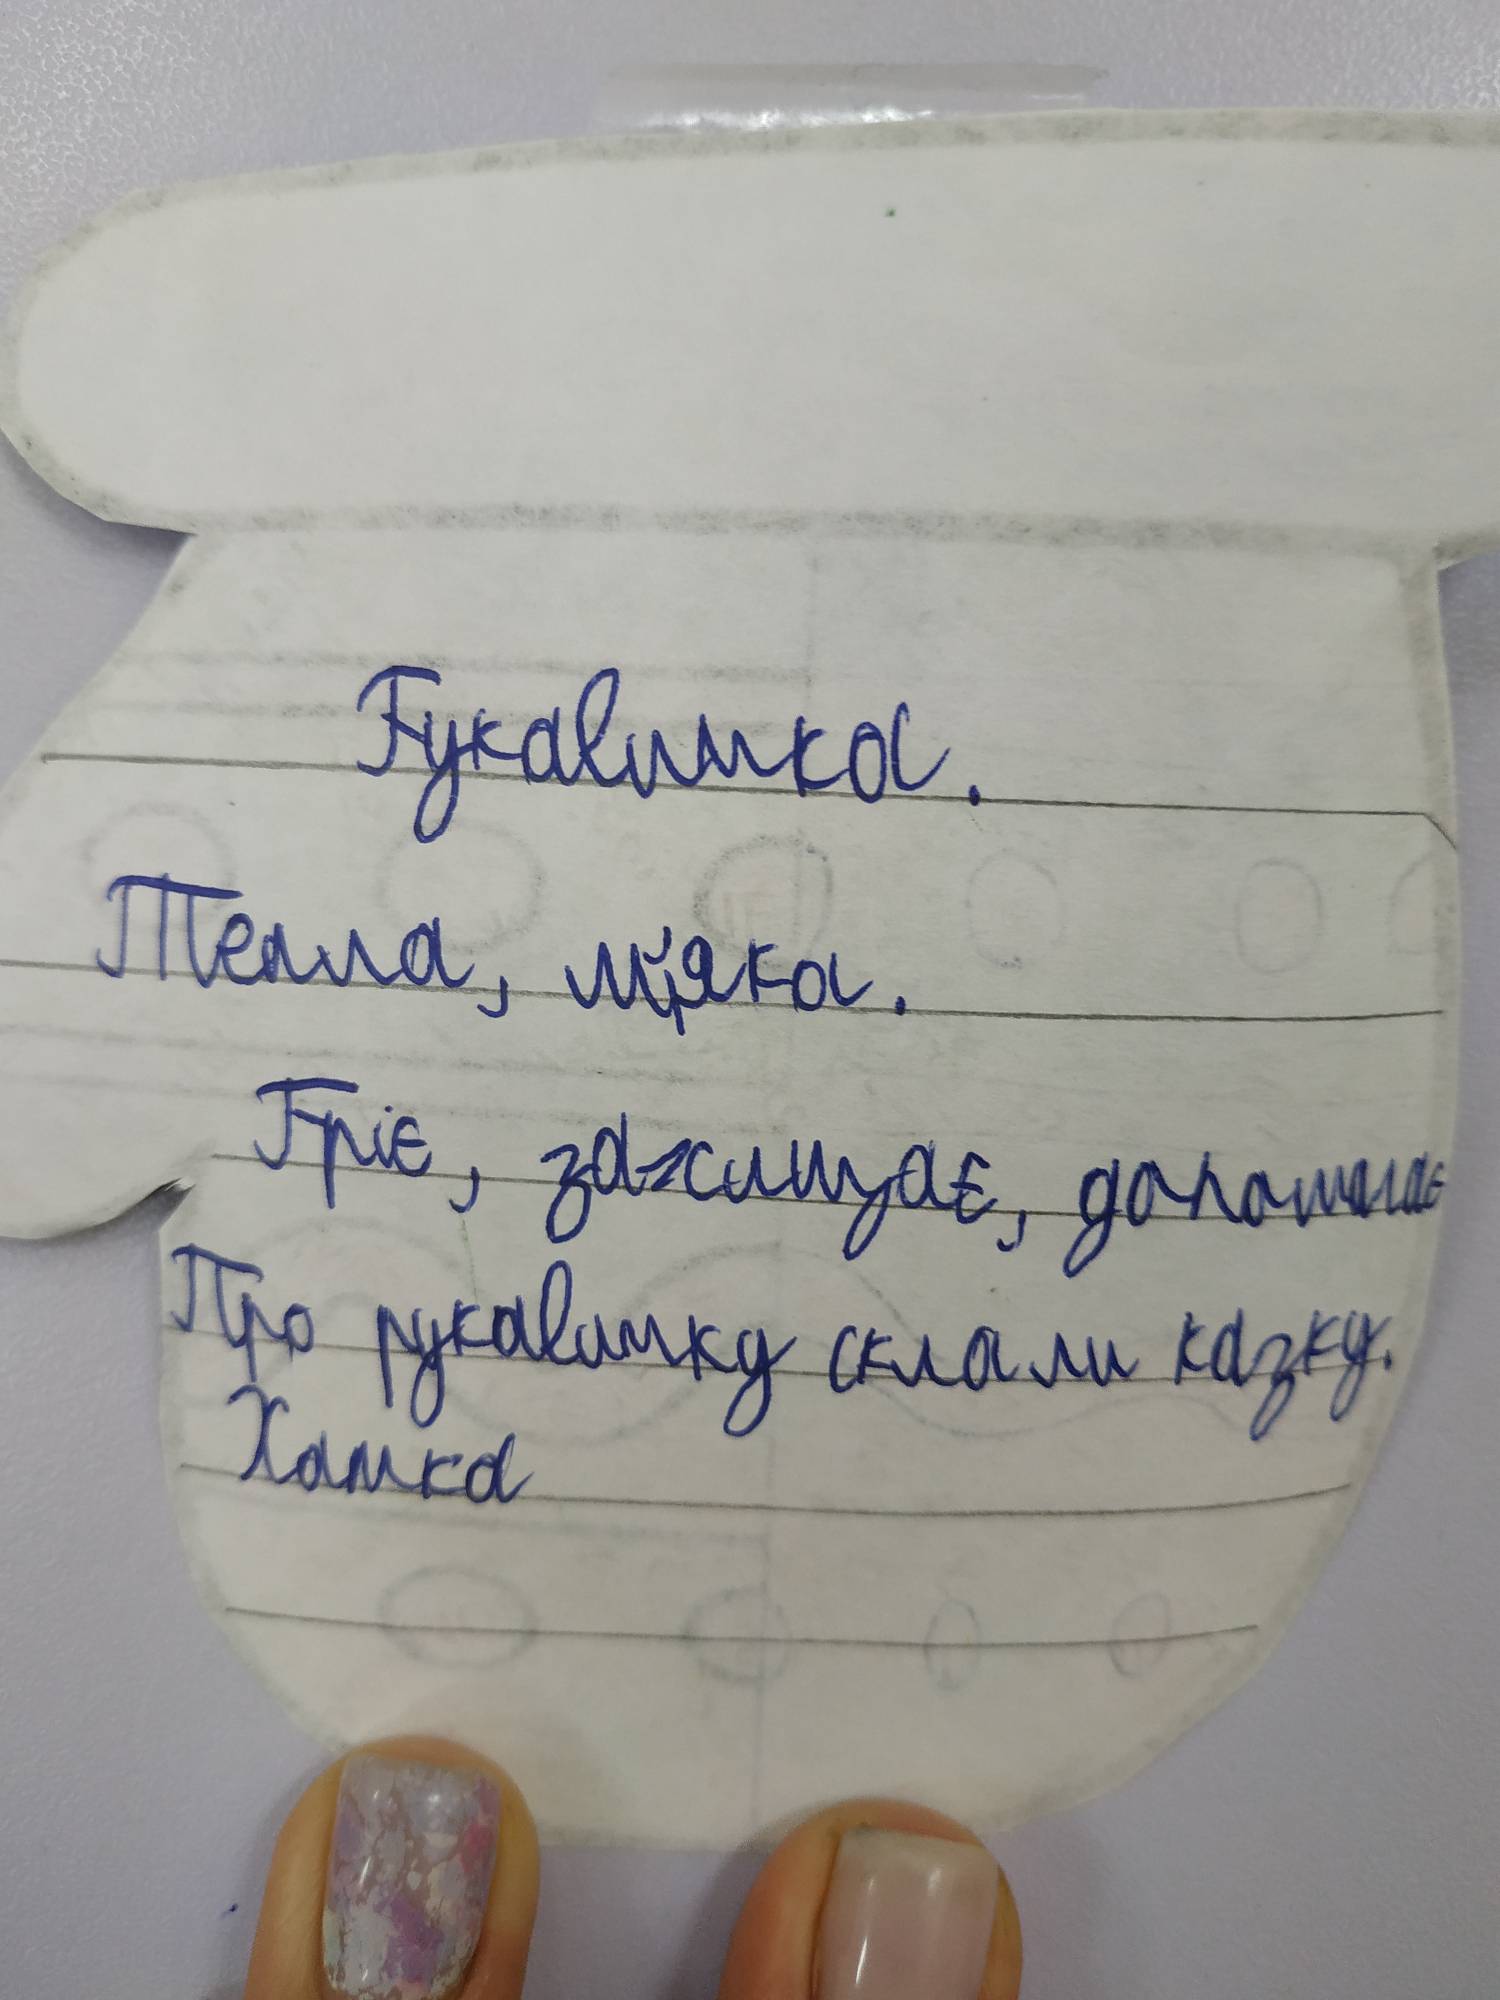 Рукавичка.
Тепла, м'яка.
Гріє, захищає, допомагає
Про рукавичку склали казку.
Хатка